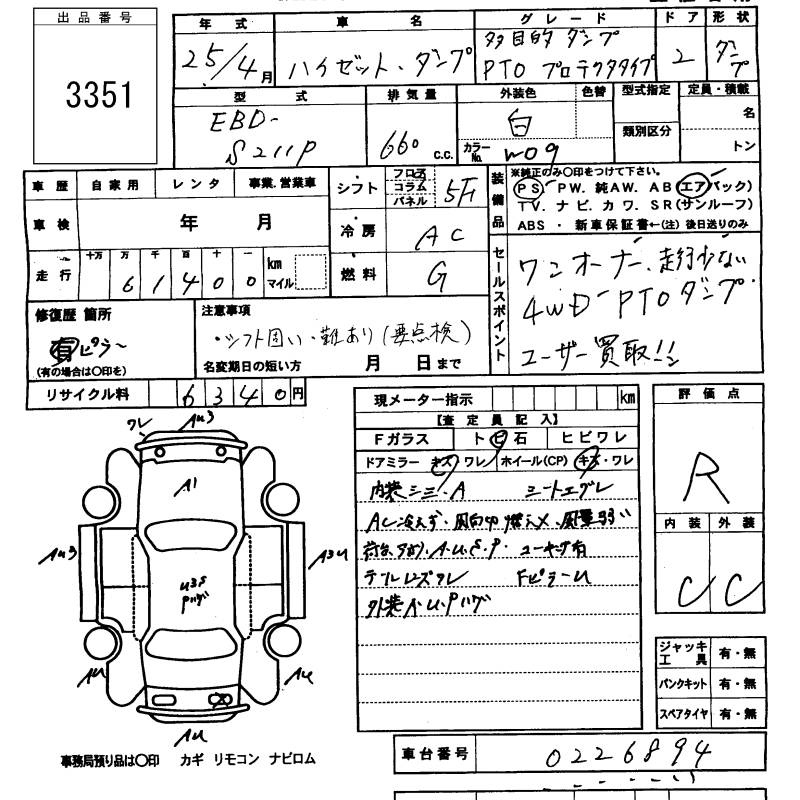 出品番号
3351
年 式 車 名 グ レ ー ド ド ア 形 状
25/4月 ハイゼット・ダンプ 多目的 ダンプ 2 ダンプ
PTO プロテクタタイプ
型 式 排 気 量 外装色 色替 型式指定 定員・積載
EBD- 白 名
S211P 660 c.c. カラーNo. W09 類別区分 トン
車 歴 自 家 用 レ ン タ 事業.営業車
車 検 年 月
走 行 十万 万 千 百 十 一 km マイル
6 1 4 0 0
シフト フロア コラム パネル 5F
冷 房 AC
燃 料 G
装備品
※純正のみ〇印をつけて下さい。
PS・PW. 純AW. AB(エアバック)
TV. ナビ. カワ. SR(サンルーフ)
ABS ・ 新車保証書←(注) 後日送りのみ
セールスポイント
ワンオーナー、走行少ない
4WD PTOダンプ
ユーザー買取!!
修復歴 箇所
有 ピラー
(有の場合は〇印を)
注意事項
・シフト固い・難あり(要点検)
名変期日の短い方 月 日まで
リサイクル料 6 3 4 0 円
現メーター指示 km
【査 定 員 記 入】
Fガラス ト ビ 石 ヒ ビ ワ レ
ドアミラー キズ・ワレ ホイール(CP) キズ・ワレ
内装シミ・A シートエグレ
AC冷えず・風向切換えX・風量弱い
荷台 A・U・S・P・ ユーザー有
テールレンズワレ FピラーU
外装A・U・P
評 価 点
R
内 装 外 装
C C
ワレ AU3
A1
AU3 A3U
U3S
P
AU AU
AU
ジャッキ工具 有・無
パンクキット 有・無
スペアタイヤ 有・無
事務局預り品は〇印 カギ リモコン ナビロム
車台番号 0226894